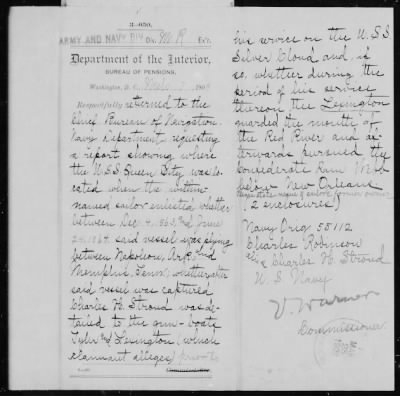 3-050.
ARMY AND NAVY DIV.
Ex'r.
Department of the Interior,
BUREAU OF PENSIONS,
Washington, D. C., 190
Respectfully returned to the
Chief Bureau of Navigation
Navy Department, requesting
a report showing where
the U.S.S. Queen City was lo-
cated when the within-
named sailor enlisted whether
between Dec. 4, 1863, and June
24, 1864 said vessel was plying
between Napoleon, Ark. and
Memphis, Tenn., whether after
said vessel was captured
Charles H. Stroud was de-
tailed to the gun-boats
Tyler and Lexington (which
claimant alleges) prior to
his service on the U.S.S.
Silver Cloud and if
so, whether during the
period of his service
thereon the Lexington
guarded the mouth of
the Red River and af-
terwards pursued the
Confederate Ram Webb
below New Orleans
2 enclosures)
Navy Orig 55112
Charles Robinson
Charles H. Stroud
U.S. Navy
V. Warner
Commissioner.